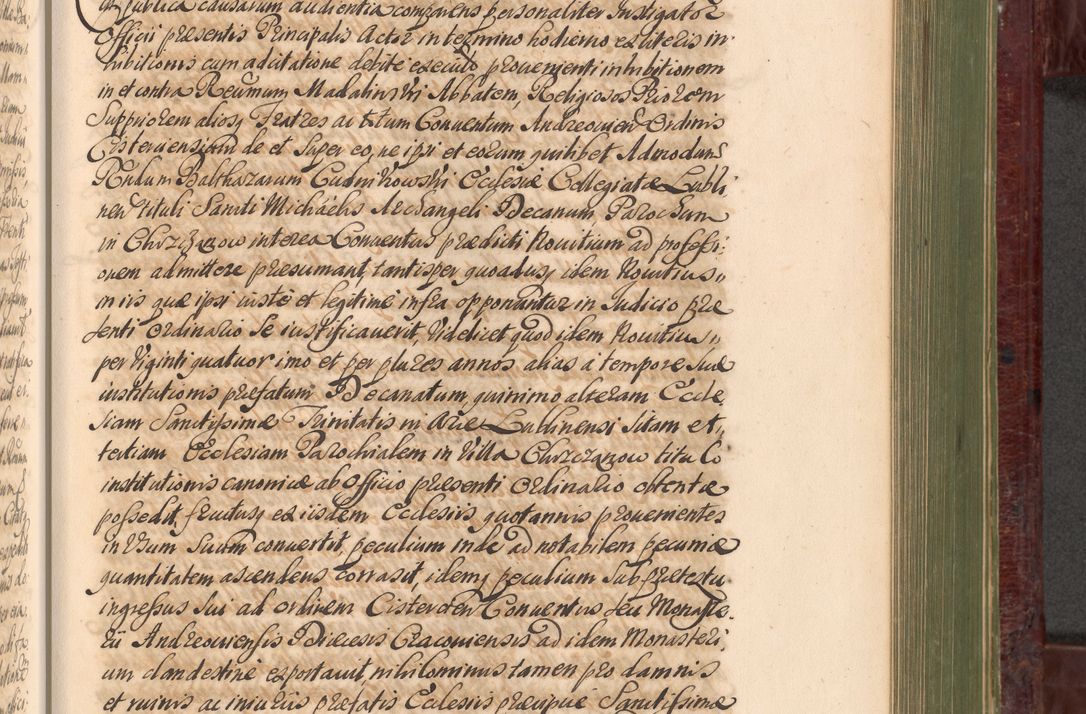 publica causarum audientia comparens personaliter Instigator
Officii præsentis Principalis Actor in termino hodierno ex literis in
hibitionis cum adcitatione debite executo provenienti inhibitionem
in et contra Reverendum Madalinski Abbatem, Religiosos Priorem
Suppriorem aliosq Fratres ac totum Conventum Andreovien Ordinis
Cisterciensium de et super eo, ne ipsi et eorum quilibet Admodum
Rndum Balthazarum Cudnikowski Ecclesiæ Collegiatæ Lubli
nen tituli Sancti Michaelis Archangeli Decanum Parochum
in Chrzczonow interea Conventus prædicti Novitium ad professi,
onem admittere præsumant, tantisper quoadusq idem Novitius,,
in iis quæ ipsi iuste et legitime infra opponantur in Judicio præ
senti Ordinario se iustificaverit, Videlicet quod idem Novitius,,
per Viginti quatuor imo et per plures annos alias a tempore suæ
institutionis præfatum Decanatum, quinimo alteram Eccle
siam Sanctissimæ Trinitatis in Arce Lublinensi sitam et,
tertiam Ecclesiam Parochialem in Villa Chrzczonow titulo
institutionis canonicæ ab officio præsenti Ordinario obtentæ
possedit, fructusq ex iisdem Ecclesiis quotannis provenientes
in Usum suum convertit, peculium inde ad notabilem pecuniæ
quantitatem ascendens corrasit, idemq peculium sub prætextu
ingressus sui ad ordinem Cistercien Conventus seu Monaste,
rii Andreoviensis Diæcesis Cracoviensis ad idem Monasteri,
um clandestine exportavit, nihilominus tamen pro damnis
et ruinis ac iniuriis præfatis Ecclesiis præcipue Sanctissimæ